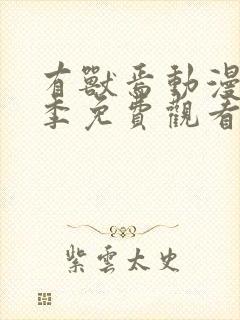 有獸焉動漫
季免費觀看
紫雲太史